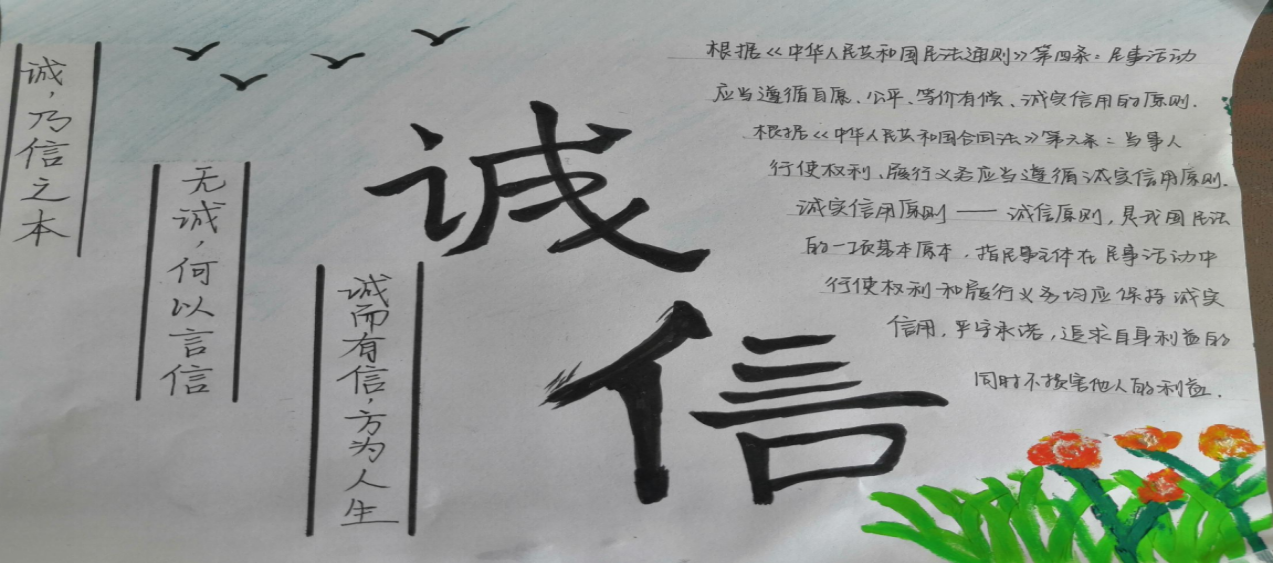 诚，乃信之本
无诚，何以言信
诚而有信，方为人生
诚
信
根据《中华人民共和国民法通则》第四条：民事活动
应当遵循自愿、公平、等价有偿、诚实信用的原则.
根据《中华人民共和国合同法》第六条：当事人
行使权利、履行义务应当遵循诚实信用原则.
诚实信用原则——诚信原则，是我国民法
的一项基本原本，指民事主体在民事活动中
行使权利和履行义务均应保持诚实
信用，严守承诺，追求自身利益的
同时不损害他人的利益.